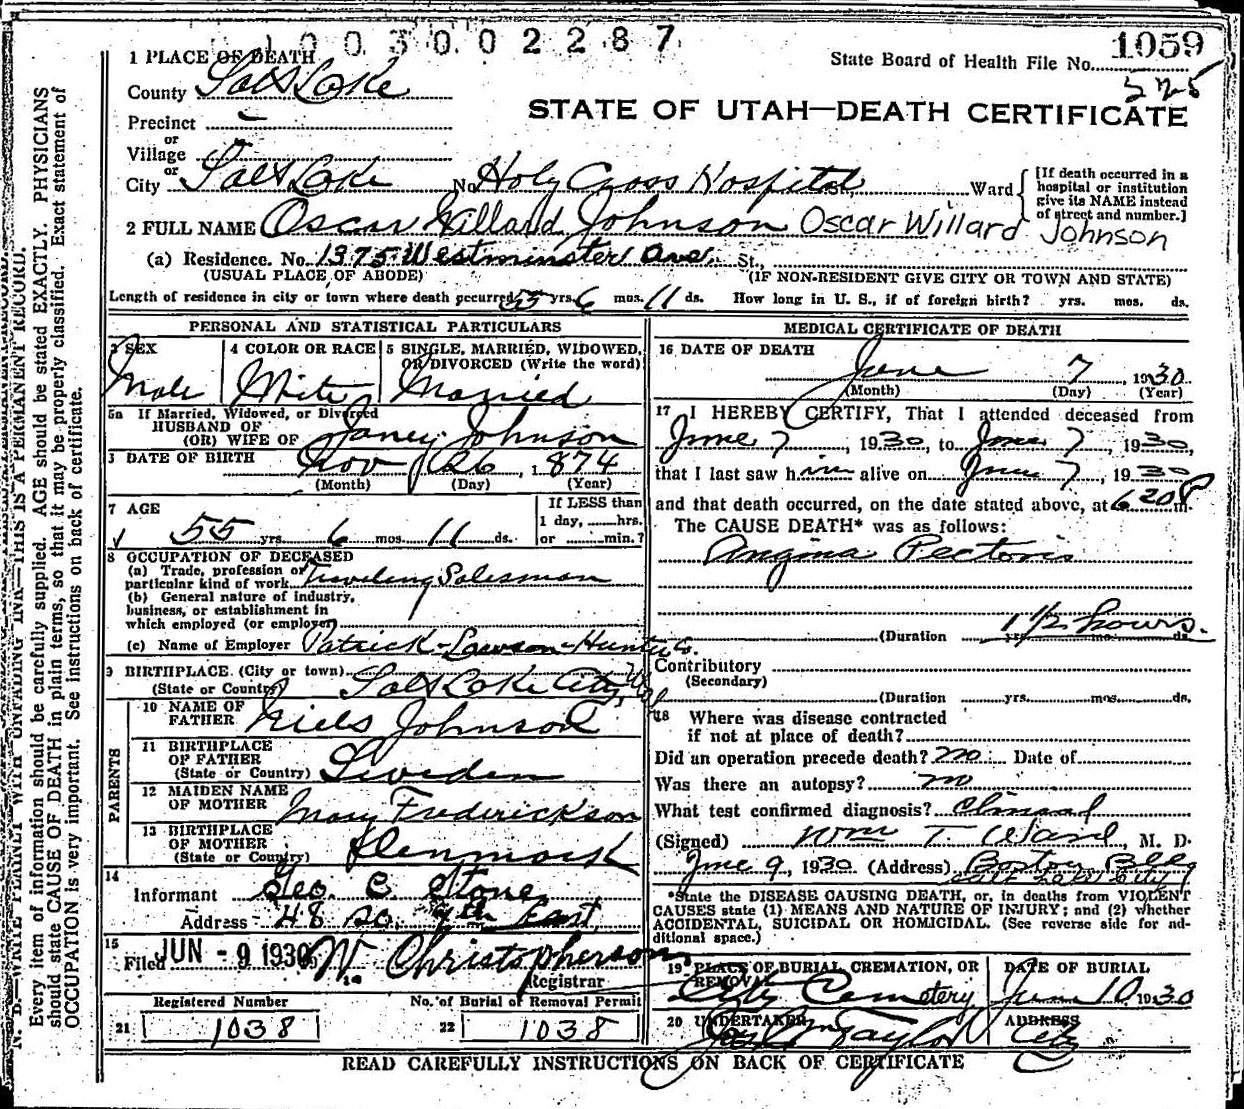 1003002287
1059
State Board of Health File No.
525
1 PLACE OF DEATH
County Salt Lake
STATE OF UTAH—DEATH CERTIFICATE
Precinct
or
Village
or
City Salt Lake No. Holy Cross Hospital St., Ward
[If death occurred in a
hospital or institution
give its NAME instead
of street and number.]
2 FULL NAME Oscar Willard Johnson Oscar Willard Johnson
(a) Residence. No. 1375 Westminster Ave. St.,
(USUAL PLACE OF ABODE) (IF NON-RESIDENT GIVE CITY OR TOWN AND STATE)
Length of residence in city or town where death occurred 55 yrs. 6 mos. 11 ds. How long in U. S., if of foreign birth? yrs. mos. ds.
PERSONAL AND STATISTICAL PARTICULARS
3 SEX
Male
4 COLOR OR RACE
White
5 SINGLE, MARRIED, WIDOWED,
OR DIVORCED (Write the word)
Married
5a If Married, Widowed, or Divorced
HUSBAND OF
(OR) WIFE OF Janey Johnson
DATE OF BIRTH Nov 26, 1874
(Month) (Day) (Year)
7 AGE
55 yrs. 6 mos. 11 ds.
If LESS than
1 day, hrs.
or min.?
8 OCCUPATION OF DECEASED
(a) Trade, profession or
particular kind of work Traveling Salesman
(b) General nature of industry,
business, or establishment in
which employed (or employer)
(c) Name of Employer Patrick-Lawson-Hunter Co.
9 BIRTHPLACE (City or town)
(State or Country) Salt Lake City,
PARENTS
10 NAME OF
FATHER Niels Johnson
11 BIRTHPLACE
OF FATHER
(State or Country) Sweden
12 MAIDEN NAME
OF MOTHER Mary Frederickson
13 BIRTHPLACE
OF MOTHER
(State or Country) Denmark
14
Informant Geo. C. Stone
Address 48 So. 7th East
15
Filed JUN - 9 1930 W. Christopherson
Registrar
Registered Number
21 1038
No. of Burial or Removal Permit
22 1038
MEDICAL CERTIFICATE OF DEATH
16 DATE OF DEATH
June 7, 1930
(Month) (Day) (Year)
17 I HEREBY CERTIFY, That I attended deceased from
June 7, 1930, to June 7, 1930,
that I last saw him alive on June 7, 1930
and that death occurred, on the date stated above, at 6 20 P m.
The CAUSE DEATH* was as follows:
Angina Pectoris
(Duration 1 1/2 hours. yrs. mos. ds.
Contributory
(Secondary)
(Duration yrs. mos. ds.
18 Where was disease contracted
if not at place of death?
Did an operation precede death? no Date of
Was there an autopsy? no
What test confirmed diagnosis? Clinical
(Signed) Wm T. Ward, M. D.
June 9, 1930 (Address) Boston Bldg
Salt Lake City
*State the DISEASE CAUSING DEATH, or, in deaths from VIOLENT
CAUSES state (1) MEANS AND NATURE OF INJURY; and (2) whether
ACCIDENTAL, SUICIDAL OR HOMICIDAL. (See reverse side for ad-
ditional space.)
19 PLACE OF BURIAL, CREMATION, OR
REMOVAL
City Cemetery
DATE OF BURIAL
June 10, 1930
20 UNDERTAKER
Taylor
ADDRESS
City
READ CAREFULLY INSTRUCTIONS ON BACK OF CERTIFICATE
N. B.—WRITE PLAINLY WITH UNFADING INK—THIS IS A PERMANENT RECORD.
Every item of information should be carefully supplied. AGE should be stated EXACTLY. PHYSICIANS
should state CAUSE OF DEATH in plain terms, so that it may be properly classified. Exact statement of
OCCUPATION is very important. See instructions on back of certificate.